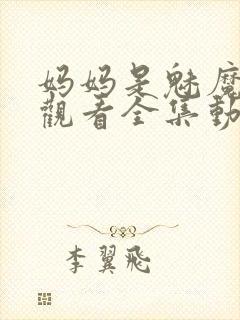 妈妈是魅魔
觀看全集動
李翼飛